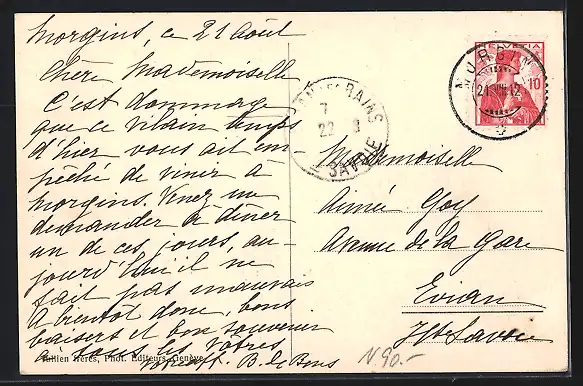 Morgins, ce 21 Août
Chère Mademoiselle
C'est dommage
que ce vilain temps
d'hier vous ait em-
pêché de venir à
Morgins. Venez me
demander à dîner
un de ces jours, au-
jourd'hui il ne
fait pas mauvais
A bientôt donc, bons
baisers et bon souvenir
à tous les vôtres
B. de Bons
Jullien frères, Phot. Editeurs, Genève
BAINS
7
22 8
SAVOIE
HELVETIA
10
MORGINS
21.VIII.12
Mademoiselle
Aimée Goy
Avenue de la Gare
Evian
Hte Savoie
N90.-